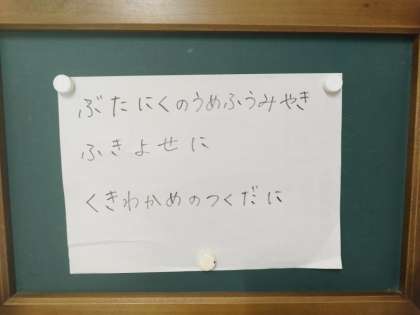 ぶたにくのうめふうみやき
ふきよせに
くきわかめのつくだに